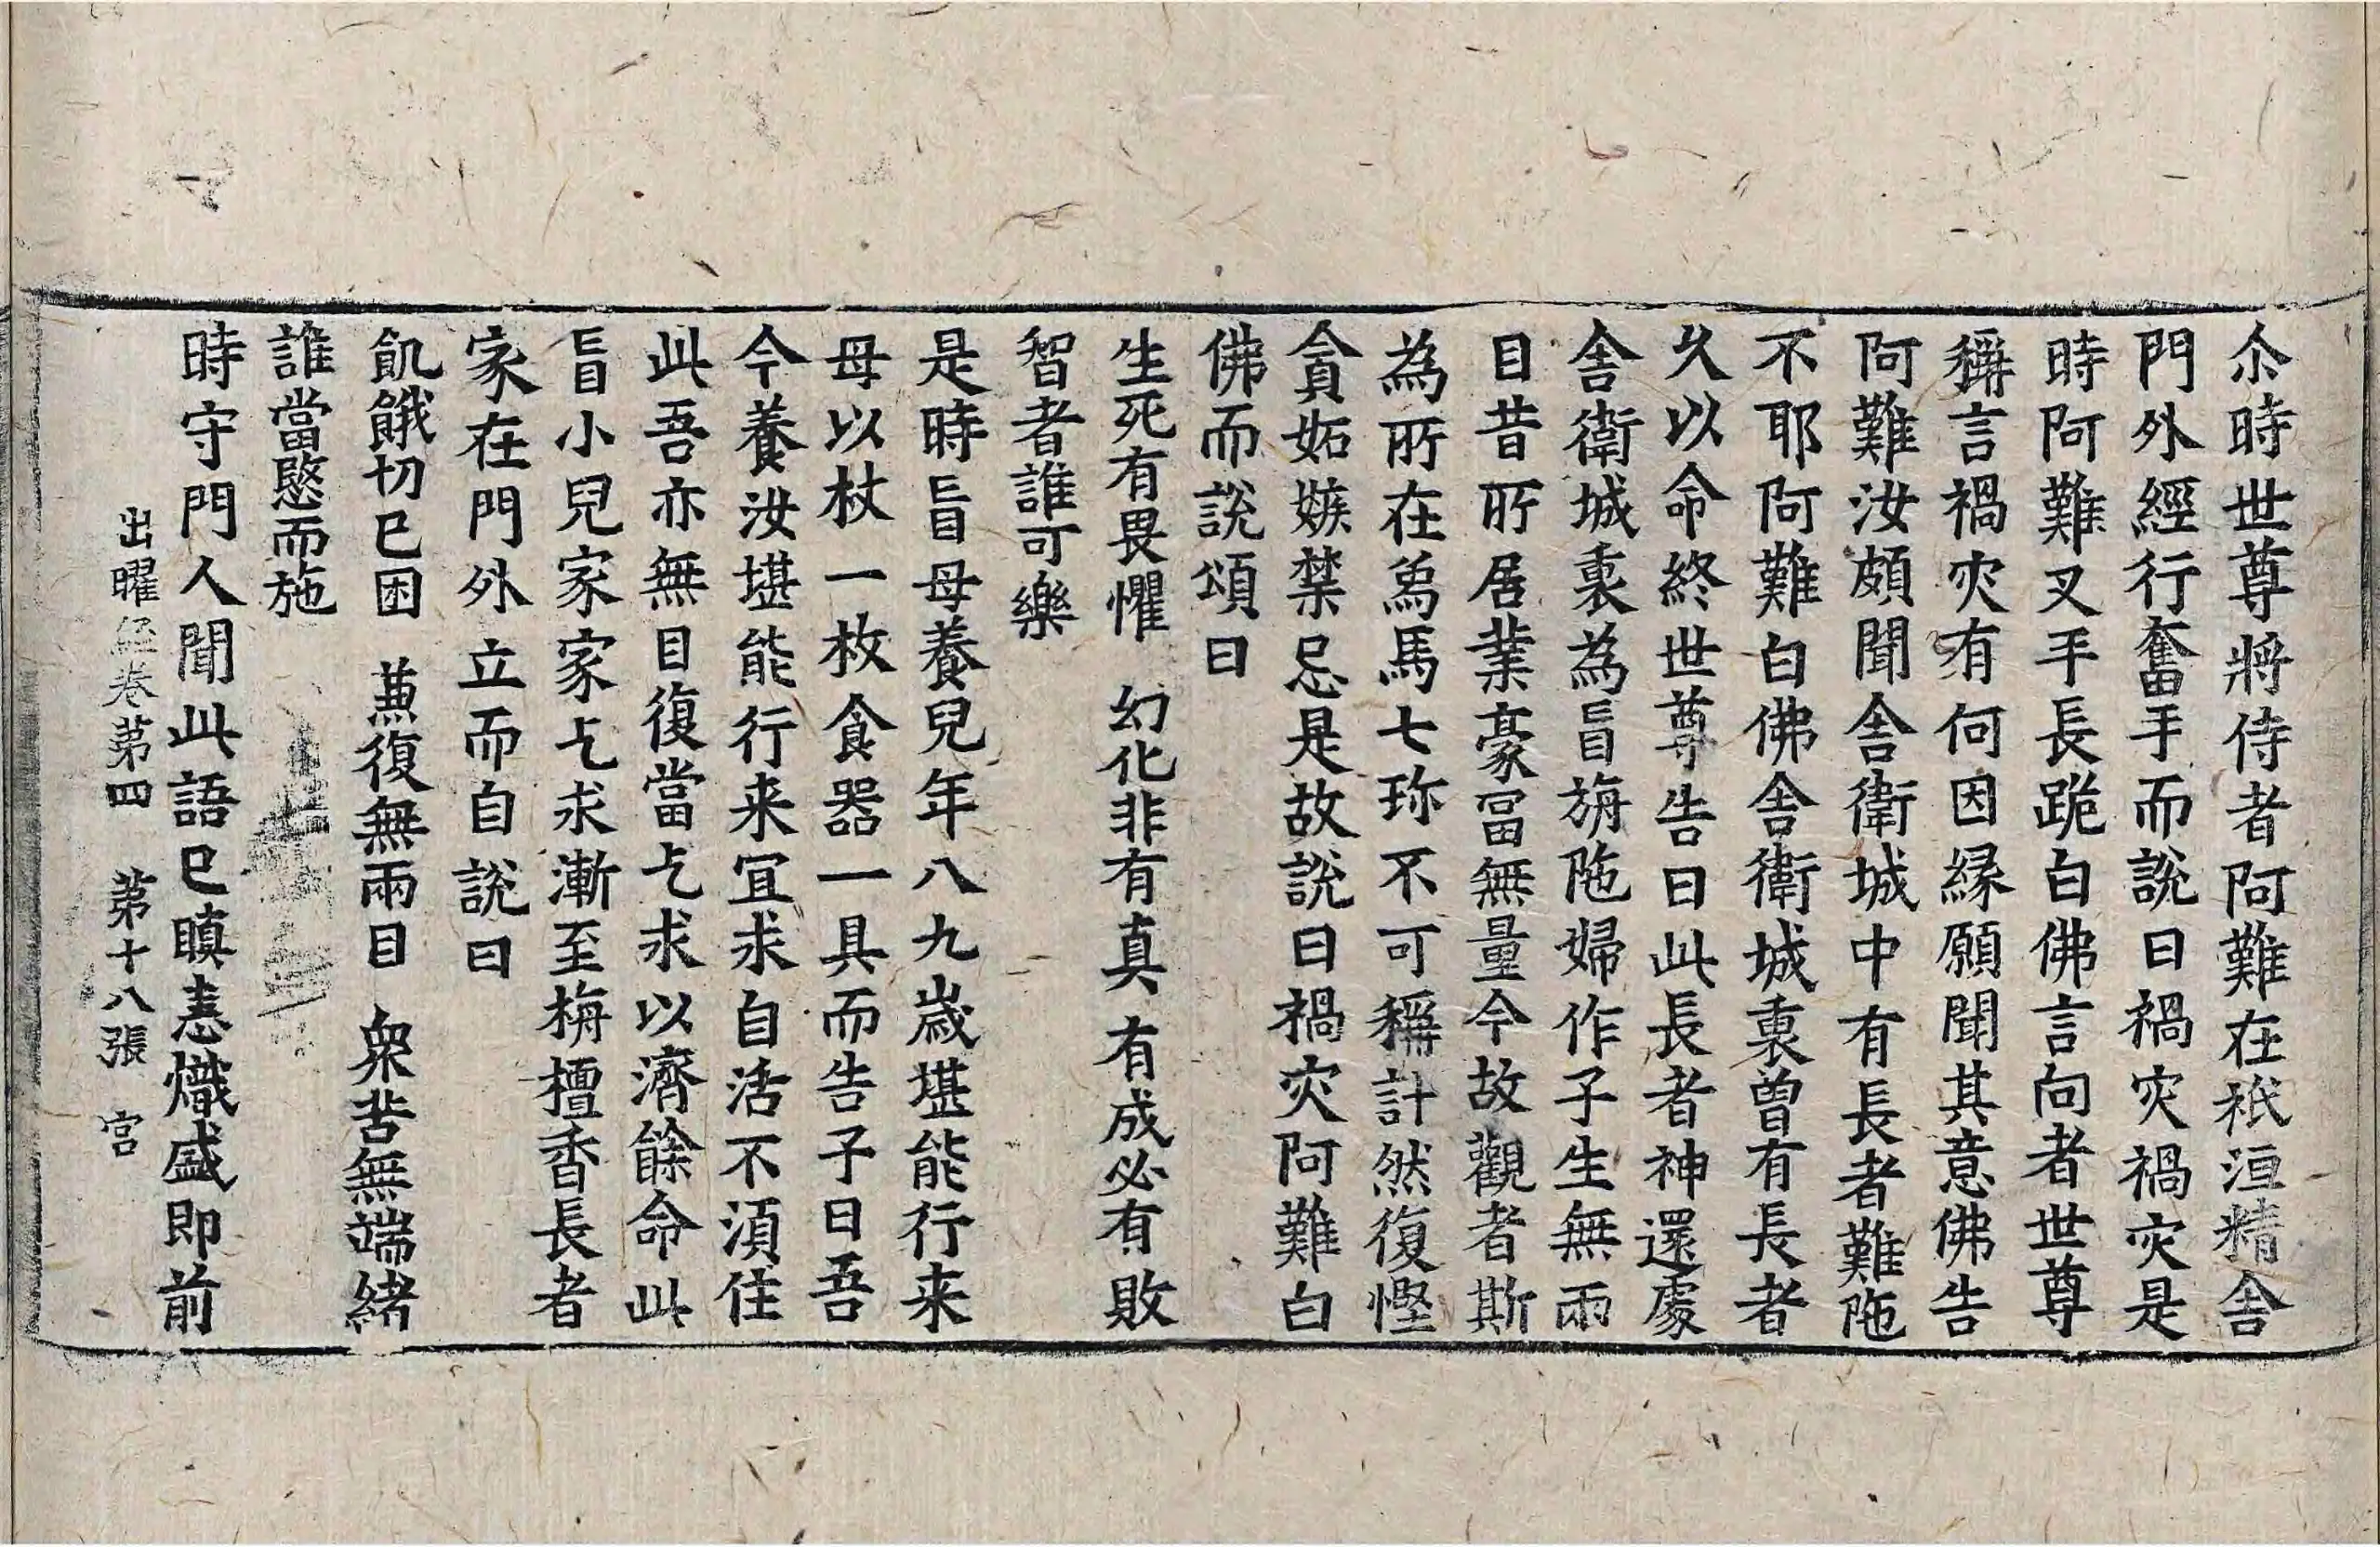 尒時世尊將侍者阿難在祇洹精舍
門外經行奮手而說曰禍灾禍灾是
時阿難叉手長跪白佛言向者世尊
稱言禍灾有何因緣願聞其意佛告
阿難汝頗聞舍衛城中有長者難陁
不耶阿難白佛舍衛城裏曾有長者
久以命終世尊告曰此長者神還處
舍衛城裏為盲旃陁婦作子生無兩
目昔所居業豪冨無量今故觀者斯
為所在爲馬七珎不可稱計然復慳
貪妬嫉禁忌是故說曰禍灾阿難白
佛而說頌曰
生死有畏懼　幻化非有真　有成必有敗
智者誰可樂
是時盲母養兒年八九歲堪能行来
母以杖一枚食器一具而告子曰吾
今養汝堪能行来冝求自活不湏住
此吾亦無目復當乞求以濟餘命此
盲小兒家家乞求漸至栴檀香長者
家在門外立而自說曰
飢餓切已困　兼復無兩目　衆苦無端緒
誰當愍而施
時守門人聞此語已瞋恚熾盛即前
出曜経卷第四　第十八張　宮